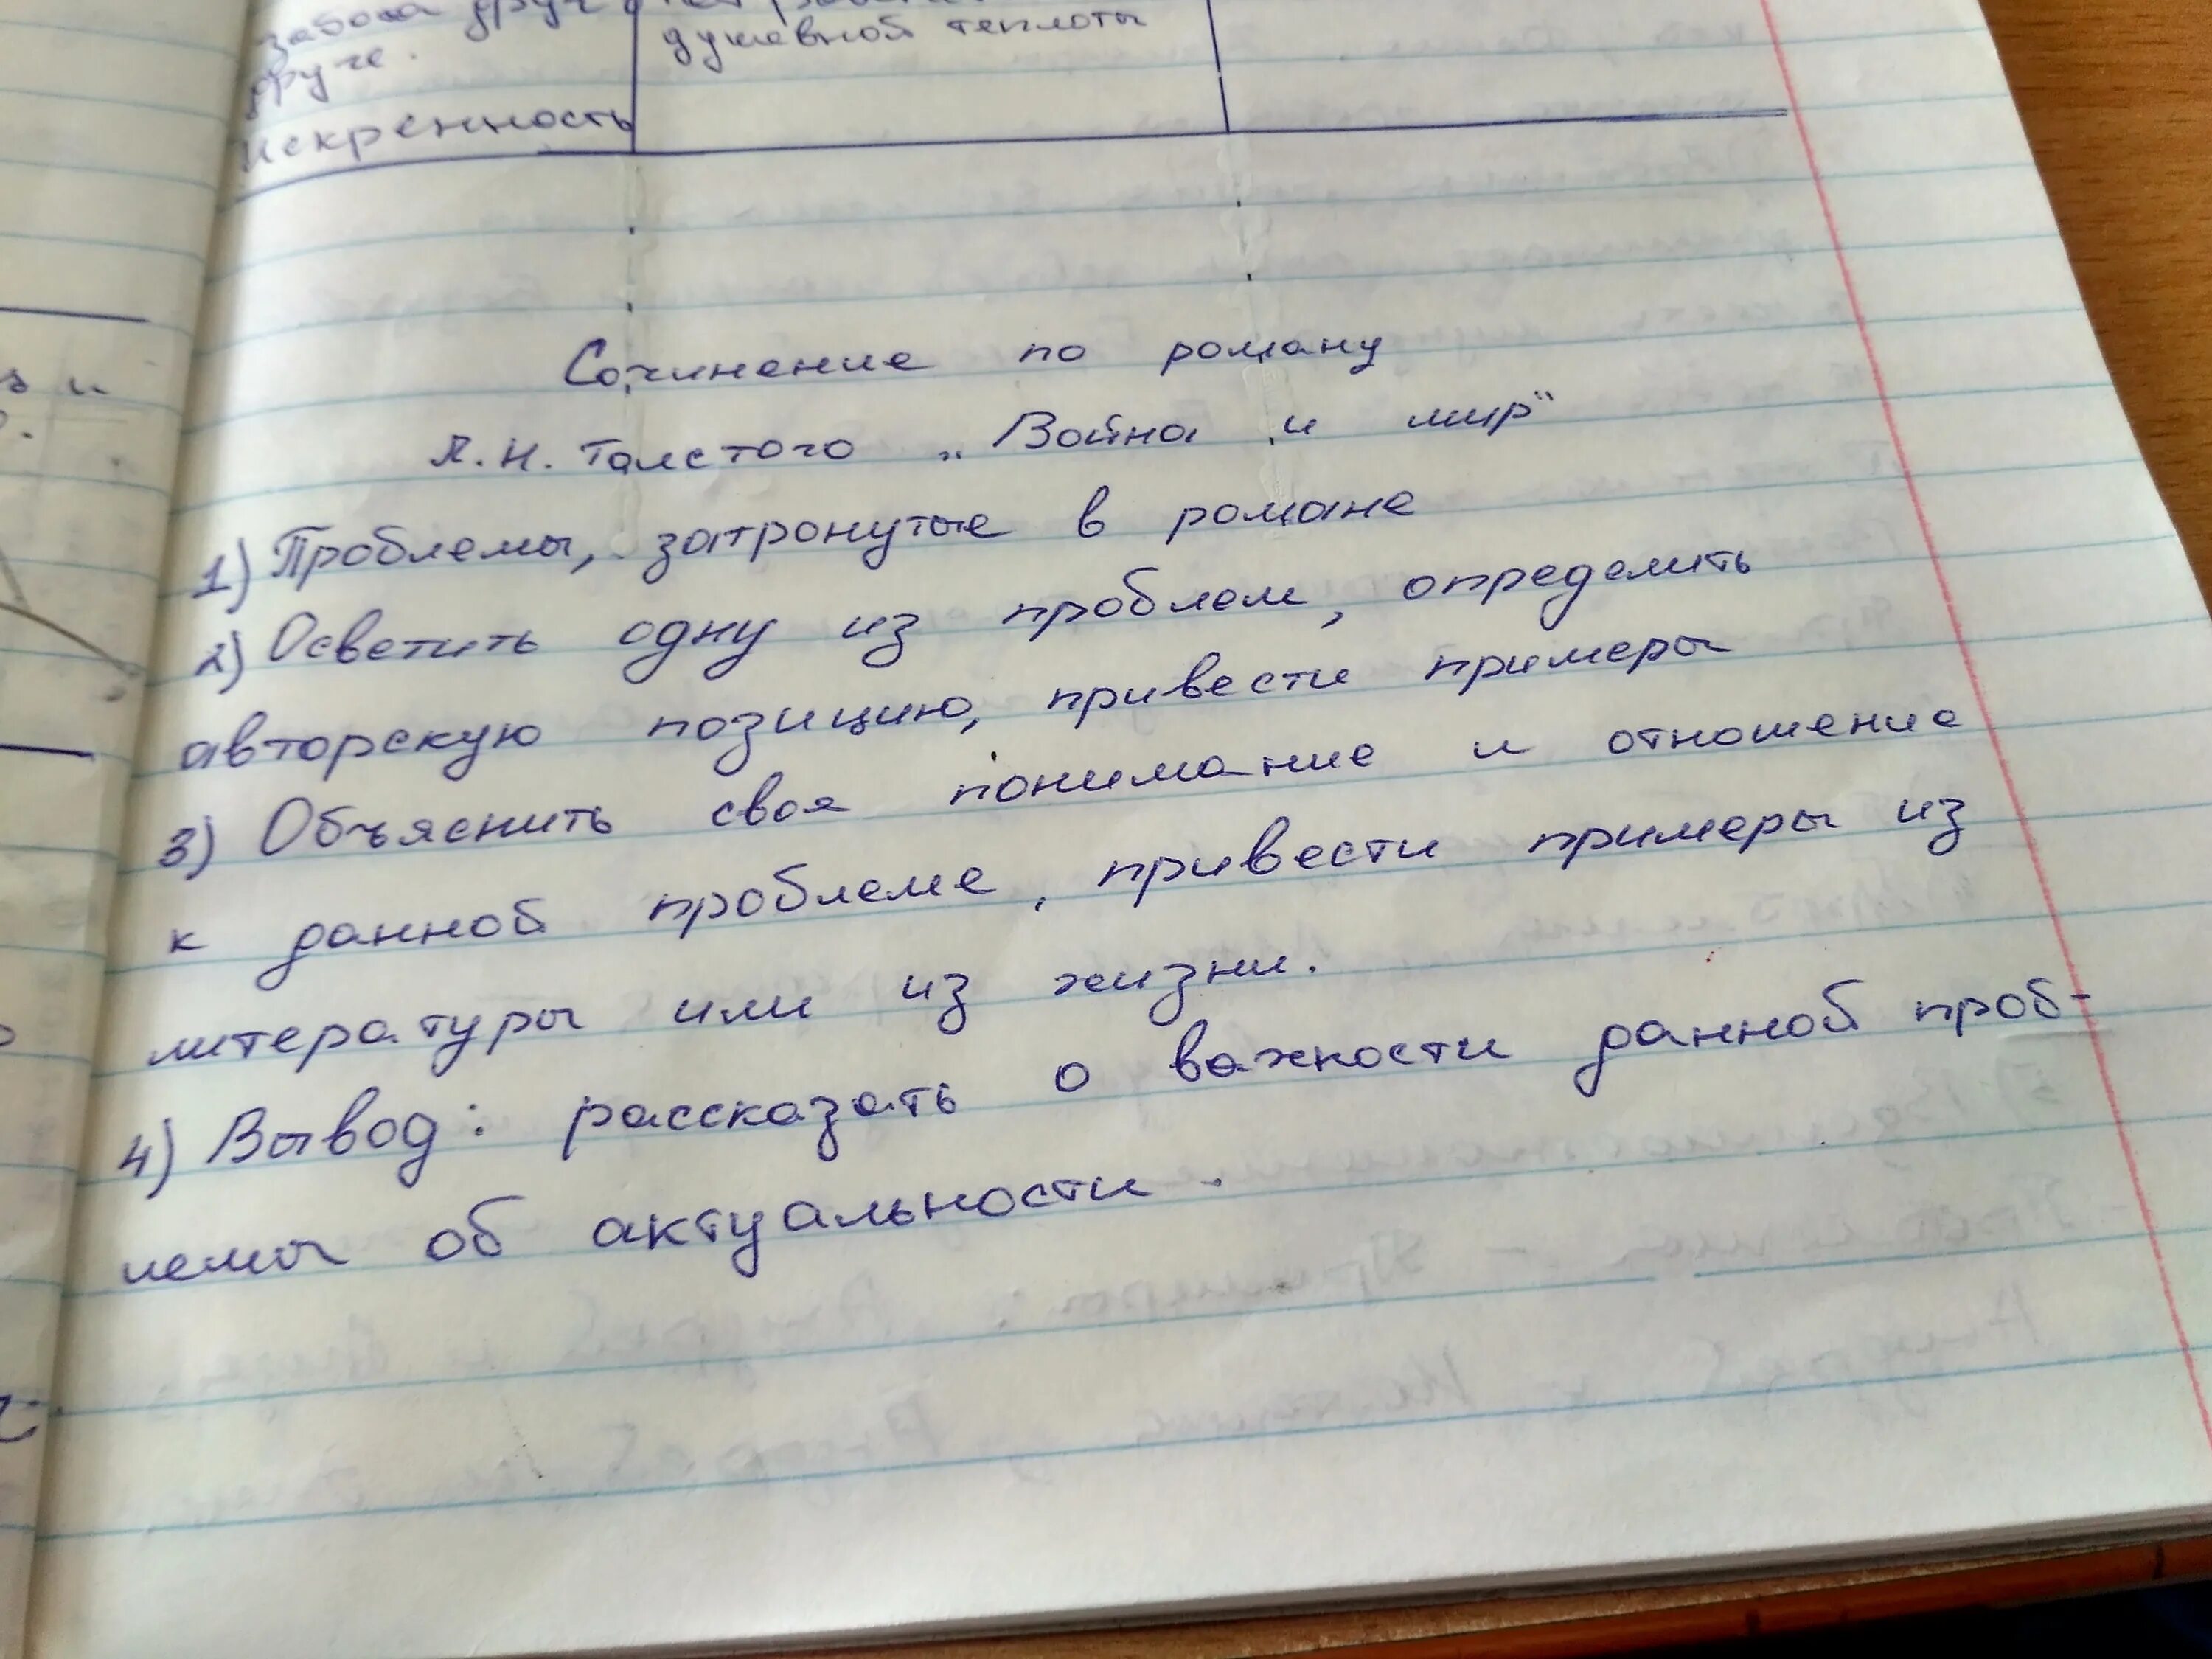 забота друг
друге.
Искренность
душевной теплоты
Сочинение по роману
Л.Н. Толстого „Война и мир“
1) Проблемы, затронутые в романе
2) Осветить одну из проблем, определить
авторскую позицию, привести примеры
3) Объяснить своя понимание и отношение
к данной проблеме, привести примеры из
литературы или из жизни.
4) Вывод: рассказать о важности данной проб-
лемы об актуальности.